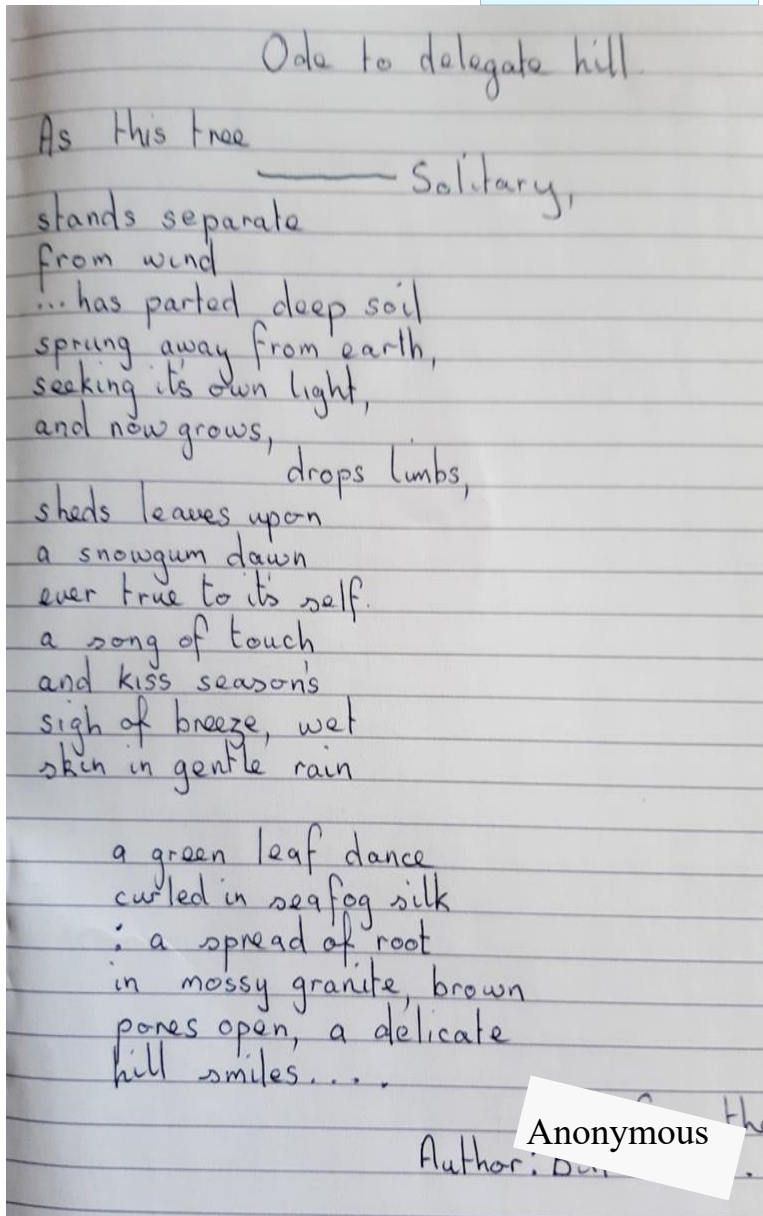 Ode to delegate hill.
As this tree
——— Solitary,
stands separate
from wind
...has parted deep soil
sprung away from earth,
seeking it's own light,
and now grows,
drops limbs,
sheds leaves upon
a snowgum dawn
ever true to it's self.
a song of touch
and kiss season's
sigh of breeze, wet
skin in gentle rain
a green leaf dance
curled in seafog silk
: a spread of root
in mossy granite, brown
pores open, a delicate
hill smiles....
Anonymous
Author: